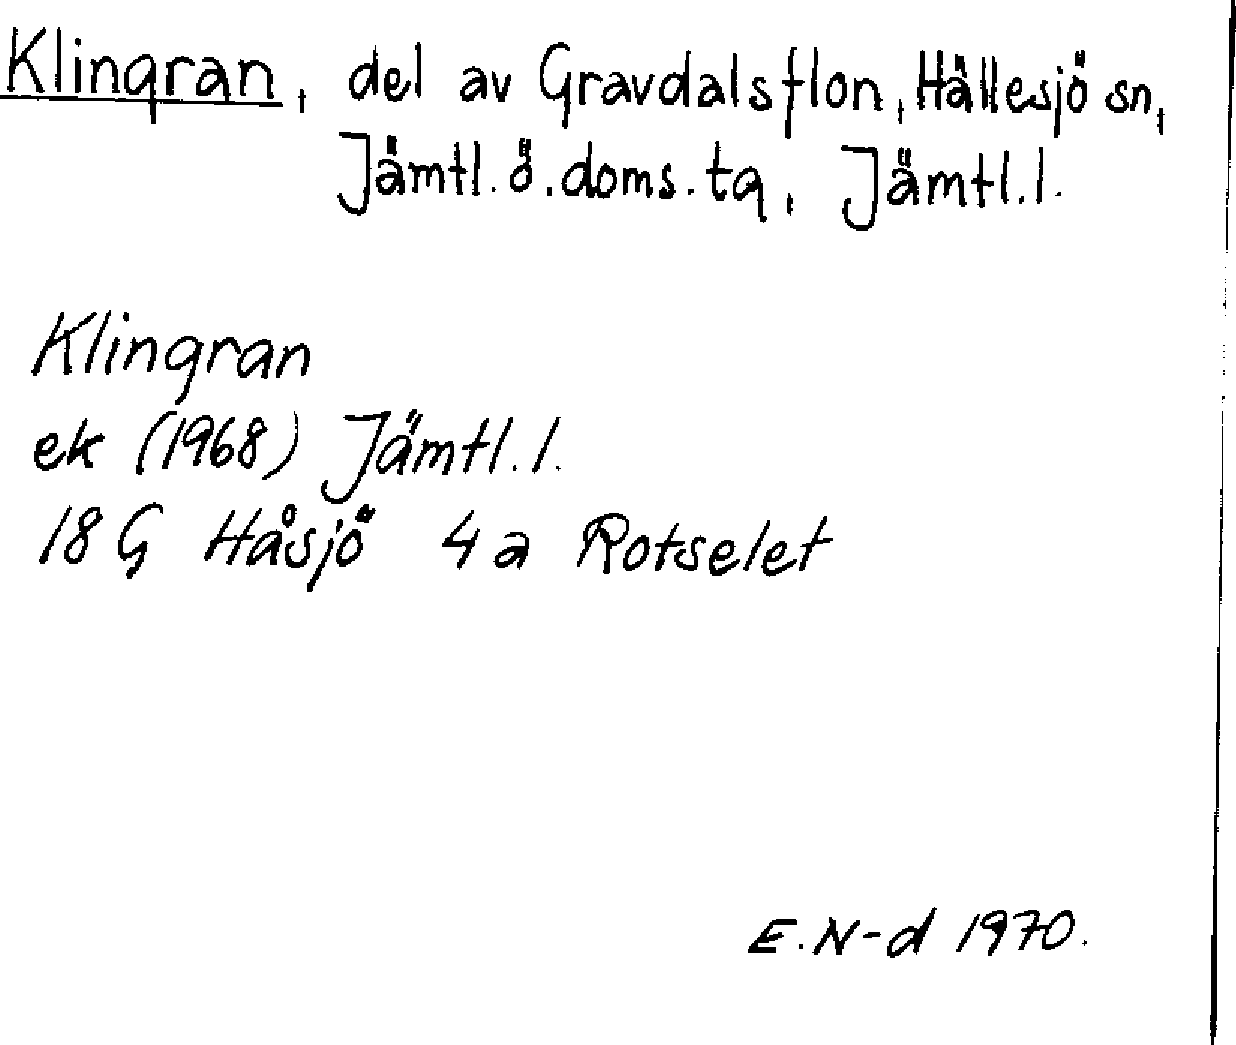 Klingran, del av Gravdalsflon, Hällesjö sn,
Jämtl. ö. doms. tg, Jämtl. l.
Klingran
ek (1968) Jämtl. l.
18 G Håsjö 4 a Rotselet
E. N-d 1970.